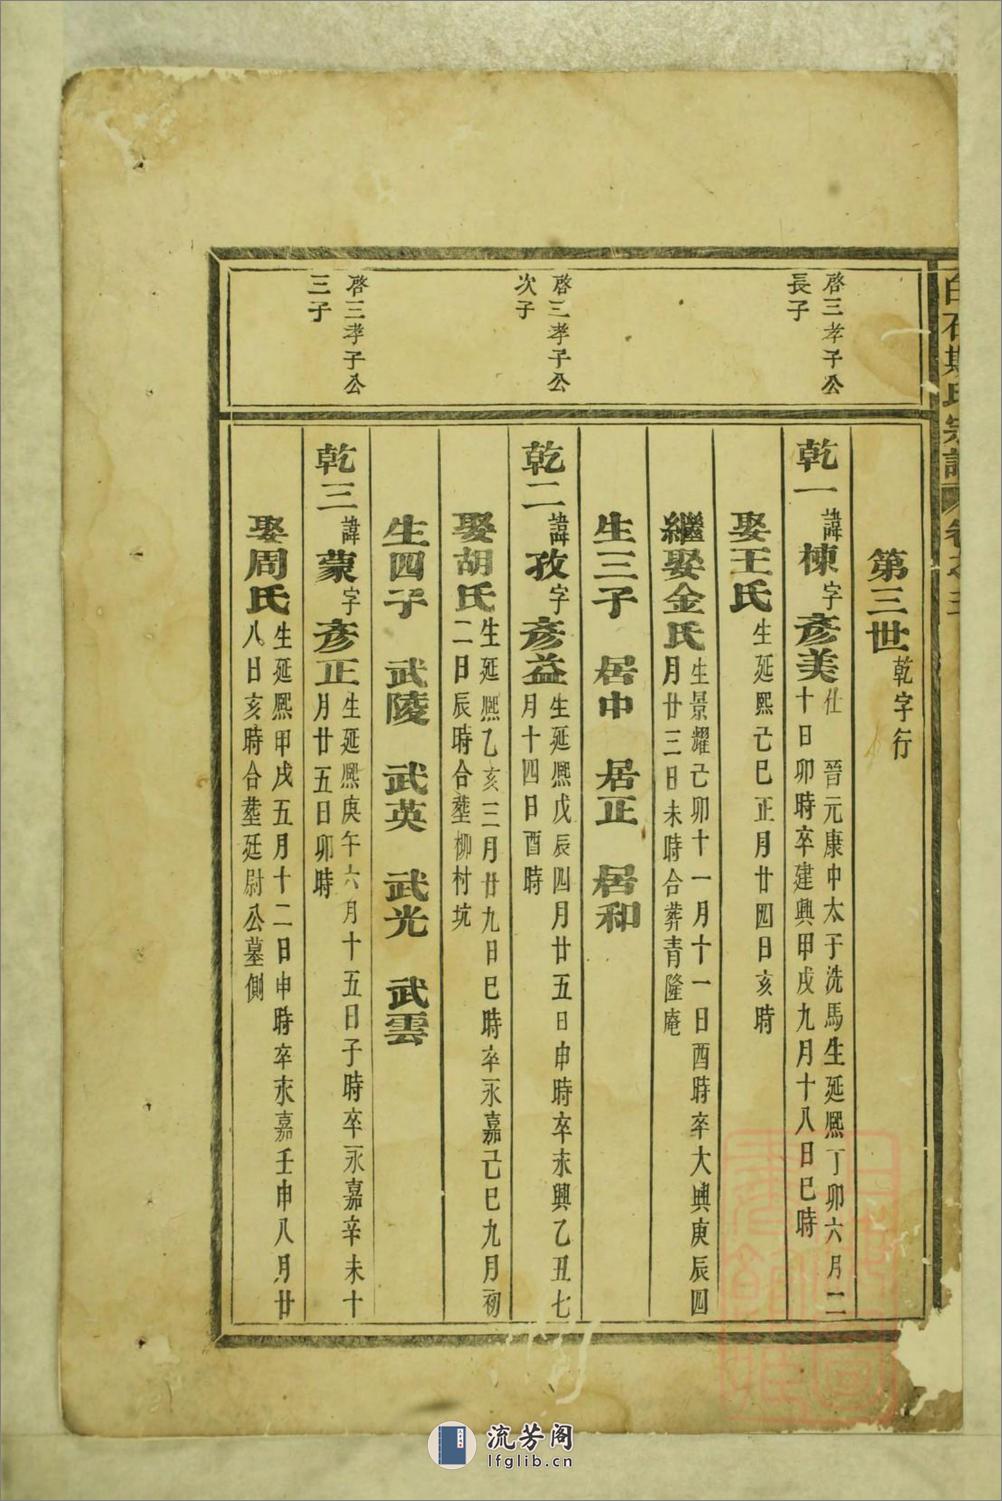 白石斯氏宗譜 卷之三
第三世 乾字行
啓三孝子公
長子
乾一 諱 棟 字 彥美 仕 晉元康中太子洗馬生延熙丁卯六月二
十日卯時卒建興甲戌九月十八日巳時
娶王氏 生延熙己巳正月廿四日亥時
繼娶金氏 生景耀己卯十一月十一日酉時卒大興庚辰四
月廿三日未時合葬青隆庵
生三子 居中 居正 居和
啓三孝子公
次子
乾二 諱 孜 字 彥益 生延熙戊辰四月廿五日申時卒永興乙丑七
月十四日酉時
娶胡氏 生延熙乙亥三月廿九日巳時卒永嘉己巳九月初
二日辰時合塟柳村坑
生四子 武陵 武英 武光 武雲
啓三孝子公
三子
乾三 諱 蒙 字 彥正 生延熙庚午六月十五日子時卒永嘉辛未十
月廿五日卯時
娶周氏 生延熙甲戌五月十二日申時卒永嘉壬申八月廿
八日亥時合塟廷尉公墓側
流芳阁
lfglib.cn